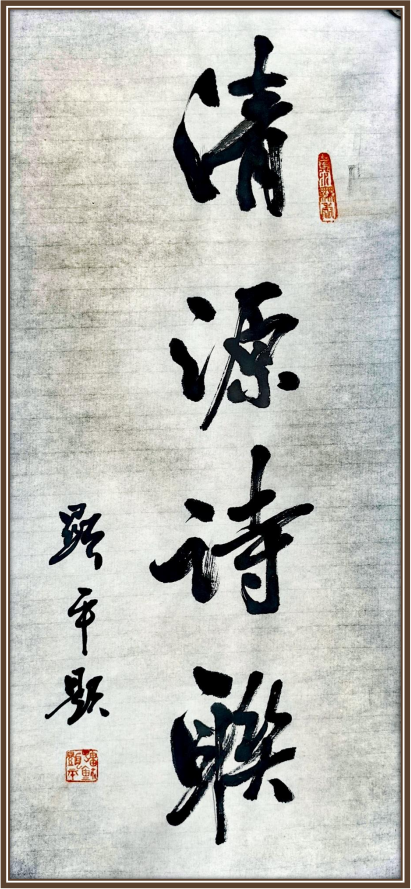 清源诗联
显平题